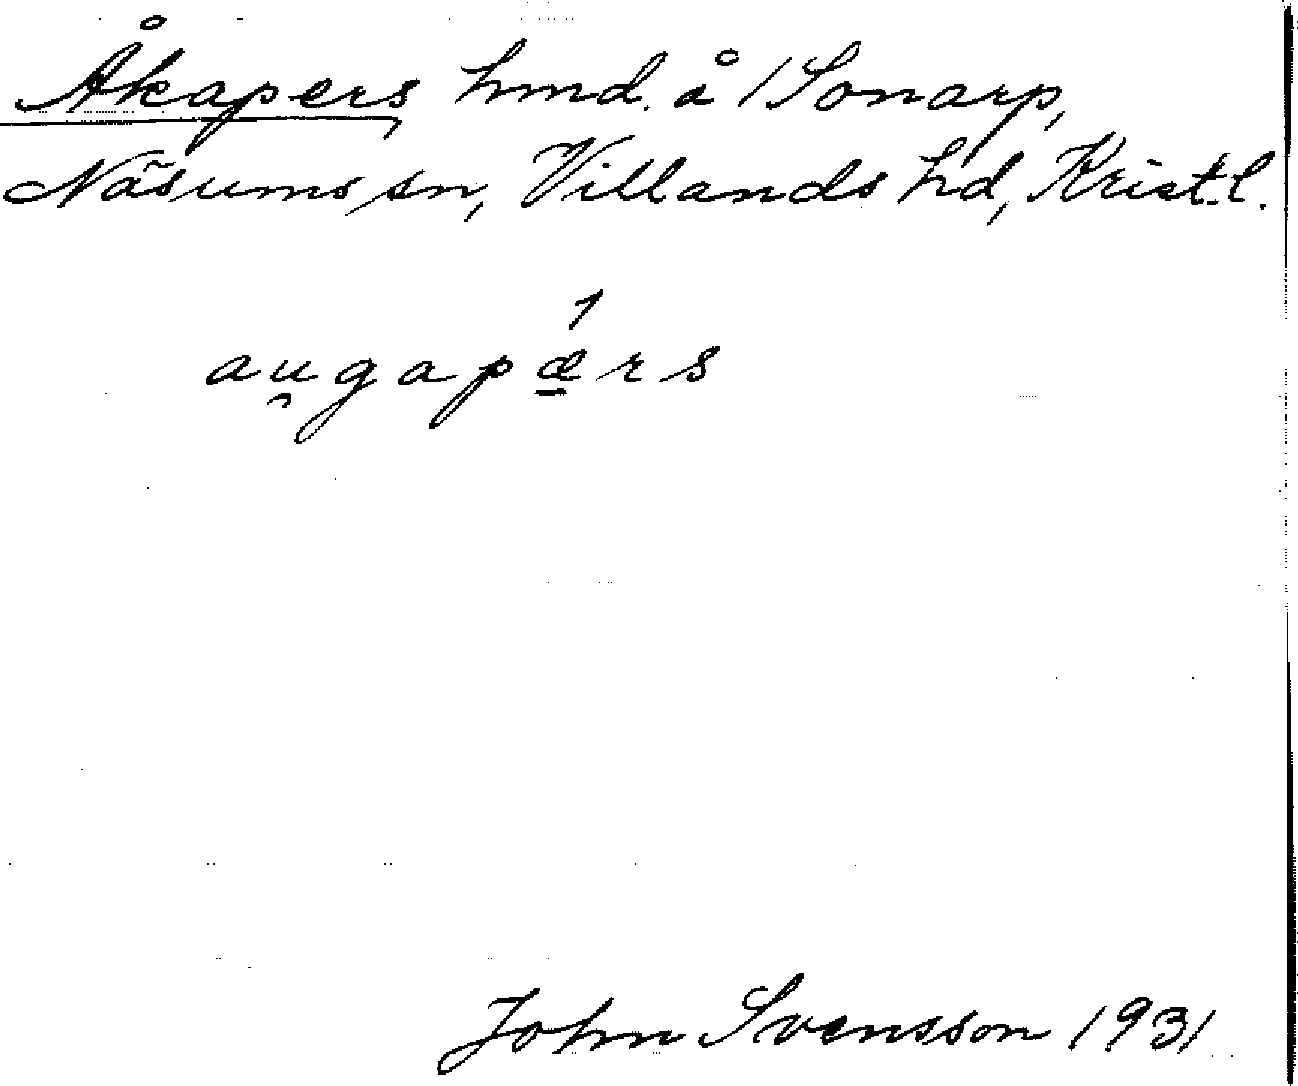 Åkapers, hmd. å 1 Sonarp,
Näsums sn, Villands hd, Krist. l.
au̯gapǽ̱rs
John Svensson 1931